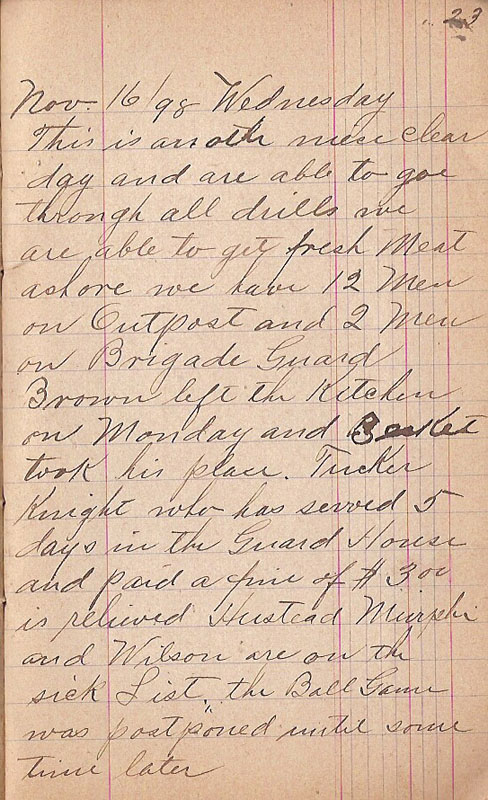 23
Nov. 16/98 Wednesday
This is anoth niese clear
day and are able to goe
through all drills we
are able to get fresh Meat
ashore we have 12 Men
on Outpost and 2 Men
on Brigade Guard
Brown left the Kitchen
on Monday and Besket
took his place. Tucker
Knight who has served 5
days in the Guard House
and paid a fine of $ 3 00
is relieved Hustead Murphi
and Wilson are on the
sick List the Ball Game
was postponed until some
time later